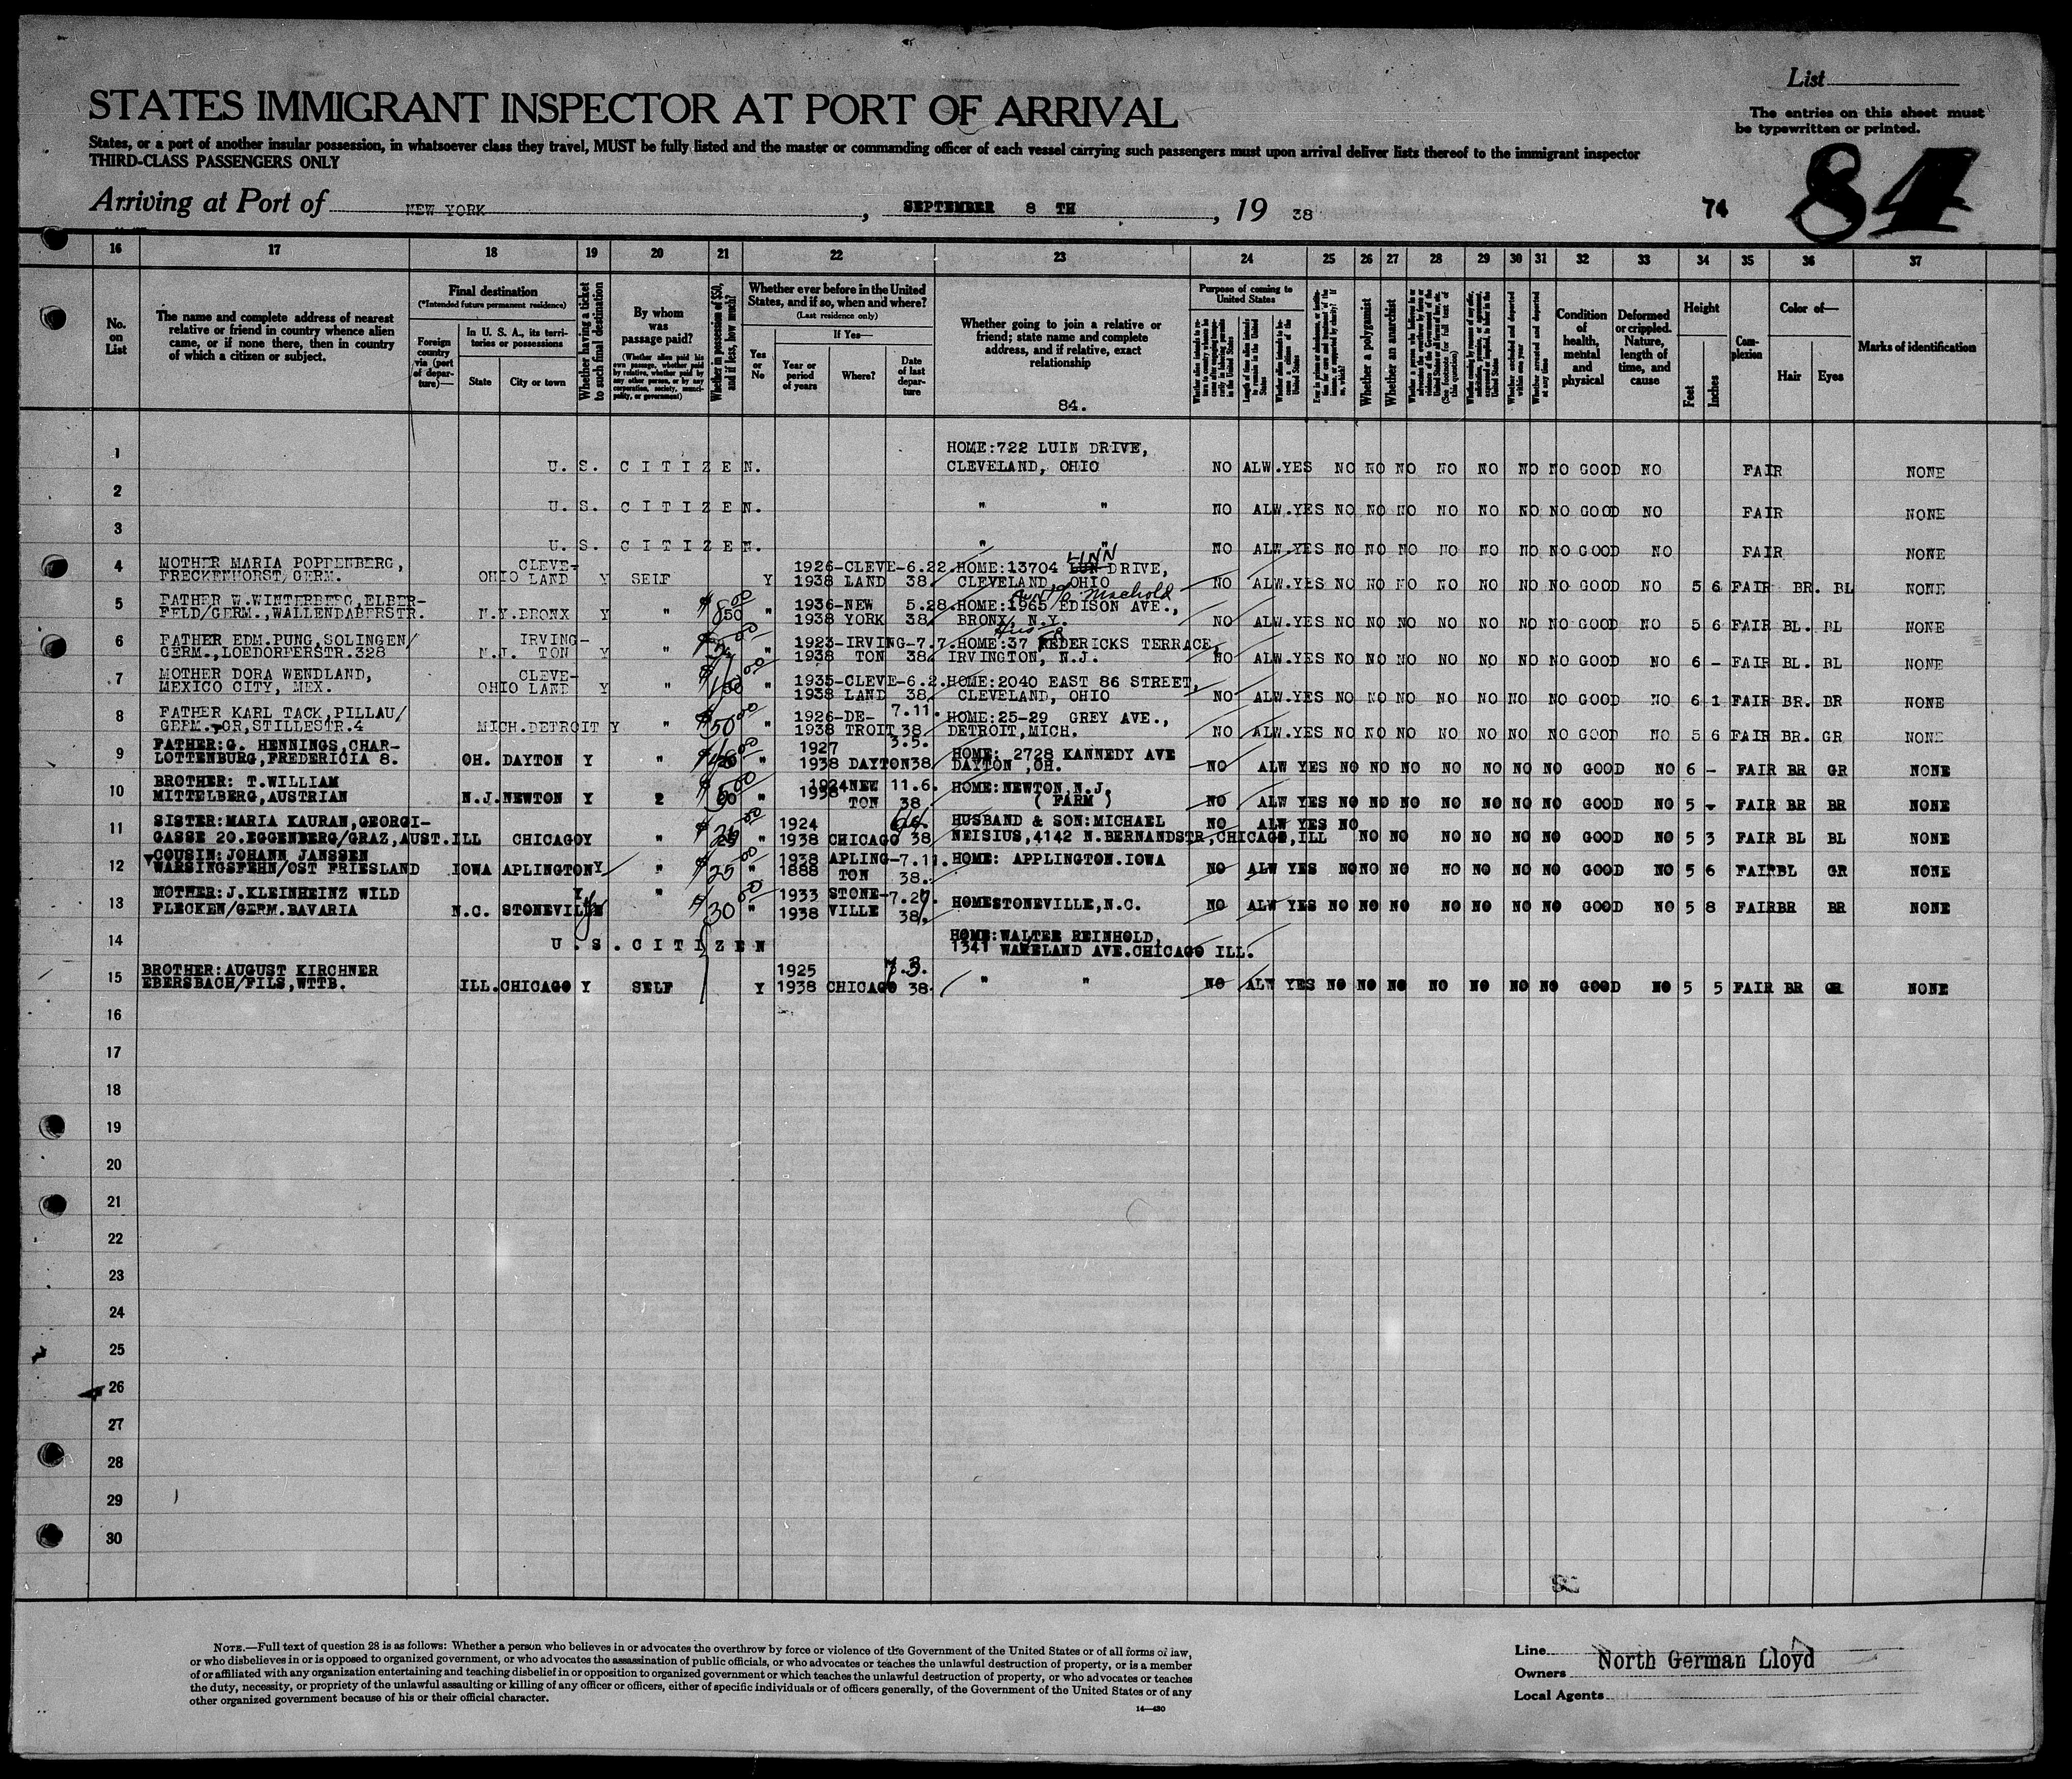 List
STATES IMMIGRANT INSPECTOR AT PORT OF ARRIVAL
The entries on this sheet must
be typewritten or printed.
States, or a port of another insular possession, in whatsoever class they travel, MUST be fully listed and the master or commanding officer of each vessel carrying such passengers must upon arrival deliver lists thereof to the immigrant inspector
THIRD-CLASS PASSENGERS ONLY
Arriving at Port of NEW YORK, SEPTEMBER 8 TH, 19 38
74 84
16 17 18 19 20 21 22 23 24 25 26 27 28 29 30 31 32 33 34 35 36 37
No. on List
The name and complete address of nearest relative or friend in country whence alien came, or if none there, then in country of which a citizen or subject.
Final destination
(*Intended future permanent residence)
Foreign country via (port of departure)—
In U. S. A., its territories or possessions
State
City or town
Whether having a ticket to such final destination
By whom was passage paid?
(Whether alien paid his own passage, whether paid by relative, whether paid by any other person, or by any corporation, society, municipality, or government)
Whether in possession of $50, and if less, how much?
Whether ever before in the United States, and if so, when and where?
(Last residence only)
Yes or No
If Yes—
Year or period of years
Where?
Date of last departure
Whether going to join a relative or friend; state name and complete address, and if relative, exact relationship
84.
Purpose of coming to United States
Whether a polygamist
Whether an anarchist
Condition of health, mental and physical
Deformed or crippled. Nature, length of time, and cause
Height
Feet
Inches
Complexion
Color of—
Hair
Eyes
Marks of identification
HOME:722 LUIN DRIVE,
1 U. S. CITIZEN. CLEVELAND, OHIO NO ALW.YES NO NO NO NO NO NO NO GOOD NO FAIR NONE
2 U. S. CITIZEN. " " NO ALW.YES NO NO NO NO NO NO NO GOOD NO FAIR NONE
3 U. S. CITIZEN. " " NO ALW.YES NO NO NO NO NO NO NO GOOD NO FAIR NONE
4 MOTHER MARIA POPPENBERG, CLEVE- 1926-CLEVE-6.22. HOME:13704 LINN DRIVE,
FRECKENHORST/GERM. OHIO LAND Y SELF Y 1938 LAND 38. CLEVELAND, OHIO NO ALW.YES NO NO NO NO NO NO NO GOOD NO 5 6 FAIR BR. BL NONE
5 FATHER W.WINTERBERG,ELBER- 1936-NEW 5.28. HOME:1965 EDISON AVE.,
FELD/GERM.,WALLENDABERSTR. N.Y. BRONX Y " " 1938 YORK 38. BRONX, N.Y. NO ALW.YES NO NO NO NO NO NO NO GOOD NO 5 6 FAIR BL. BL NONE
6 FATHER EDM.PUNG,SOLINGEN/ IRVING- 1923-IRVING-7.7. HOME:37 FREDERICKS TERRACE,
GERM.,LOEDORFERSTR.328 N.J. TON Y " " 1938 TON 38. IRVINGTON, N.J. NO ALW.YES NO NO NO NO NO NO NO GOOD NO 6 - FAIR BL. BL NONE
7 MOTHER DORA WENDLAND, CLEVE- 1935-CLEVE-6.2. HOME:2040 EAST 86 STREET,
MEXICO CITY, MEX. OHIO LAND Y " " 1938 LAND 38. CLEVELAND, OHIO NO ALW.YES NO NO NO NO NO NO NO GOOD NO 6 1 FAIR BR. BR NONE
8 FATHER KARL TACK,PILLAU/ 1926-DE- 7.11. HOME:25-29 GREY AVE.,
GERM. OR,STILLESTR.4 MICH. DETROIT Y " $50 00 " 1938 TROIT 38. DETROIT,MICH. NO ALW.YES NO NO NO NO NO NO NO GOOD NO 5 6 FAIR BR. GR NONE
9 FATHER:G. HENNINGS,CHAR- 1927 3.5. HOME: 2728 KANNEDY AVE
LOTTENBURG,FREDERICIA 8. OH. DAYTON Y " " 1938 DAYTON 38 DAYTON ,OH. NO ALW YES NO NO NO NO NO NO NO GOOD NO 6 - FAIR BR GR NONE
10 BROTHER: T.WILLIAM 1924 NEW 11.6. HOME:NEWTON,N.J.
MITTELBERG,AUSTRIAN N.J. NEWTON Y " 1938 TON 38 ( FARM ) NO ALW YES NO NO NO NO NO NO NO GOOD NO 5 - FAIR BR BR NONE
11 SISTER:MARIA KAURAN,GEORGI- 1924 HUSBAND & SON:MICHAEL NO ALW YES NO
GASSE 20.EGGENBERG/GRAZ,AUST. ILL CHICAGO Y " " 1938 CHICAGO 38 NEISIUS,4142 N.BERNANDSTR,CHICAGO,ILL NO NO NO NO NO NO GOOD NO 5 3 FAIR BL BL NONE
12 COUSIN:JOHANN JANSSEN 1938 APLING-7.11. HOME: APPLINGTON.IOWA
WARSINGSFEHN/OST FRIESLAND IOWA APLINGTON Y " $25 00 " 1888 TON 38. NO ALW YES NO NO NO NO NO NO NO GOOD NO 5 6 FAIR BL GR NONE
13 MOTHER:J.KLEINHEINZ WILD Y " 1933 STONE-7.20.
FLECKEN/GERM.BAVARIA N.C. STONEVILLE $30 00 " 1938 VILLE 38. HOME STONEVILLE,N.C. NO ALW YES NO NO NO NO NO NO NO GOOD NO 5 8 FAIR BR BR NONE
14 U.S.CITIZEN HOME:WALTER REINHOLD,
1341 WAKELAND AVE.CHICAGO ILL.
15 BROTHER:AUGUST KIRCHNER 1925 7.3.
EBERSBACH/FILS,WTTB. ILL. CHICAGO Y SELF Y 1938 CHICAGO 38. " " NO ALW YES NO NO NO NO NO NO NO GOOD NO 5 5 FAIR BR GR NONE
16
17
18
19
20
21
22
23
24
25
26
27
28
29
30
NOTE.—Full text of question 28 is as follows: Whether a person who believes in or advocates the overthrow by force or violence of the Government of the United States or of all forms of law,
or who disbelieves in or is opposed to organized government, or who advocates the assassination of public officials, or who advocates or teaches the unlawful destruction of property, or is a member
of or affiliated with any organization entertaining and teaching disbelief in or opposition to organized government or which teaches the unlawful destruction of property, or who advocates or teaches
the duty, necessity, or propriety of the unlawful assaulting or killing of any officer or officers, either of specific individuals or of officers generally, of the Government of the United States or of any
other organized government because of his or their official character.
14—430
Line
Owners North German Lloyd
Local Agents